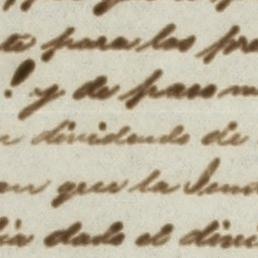 te para los pre
! y de paso m
n dividendo de
on que la Jun
dia dado el divi